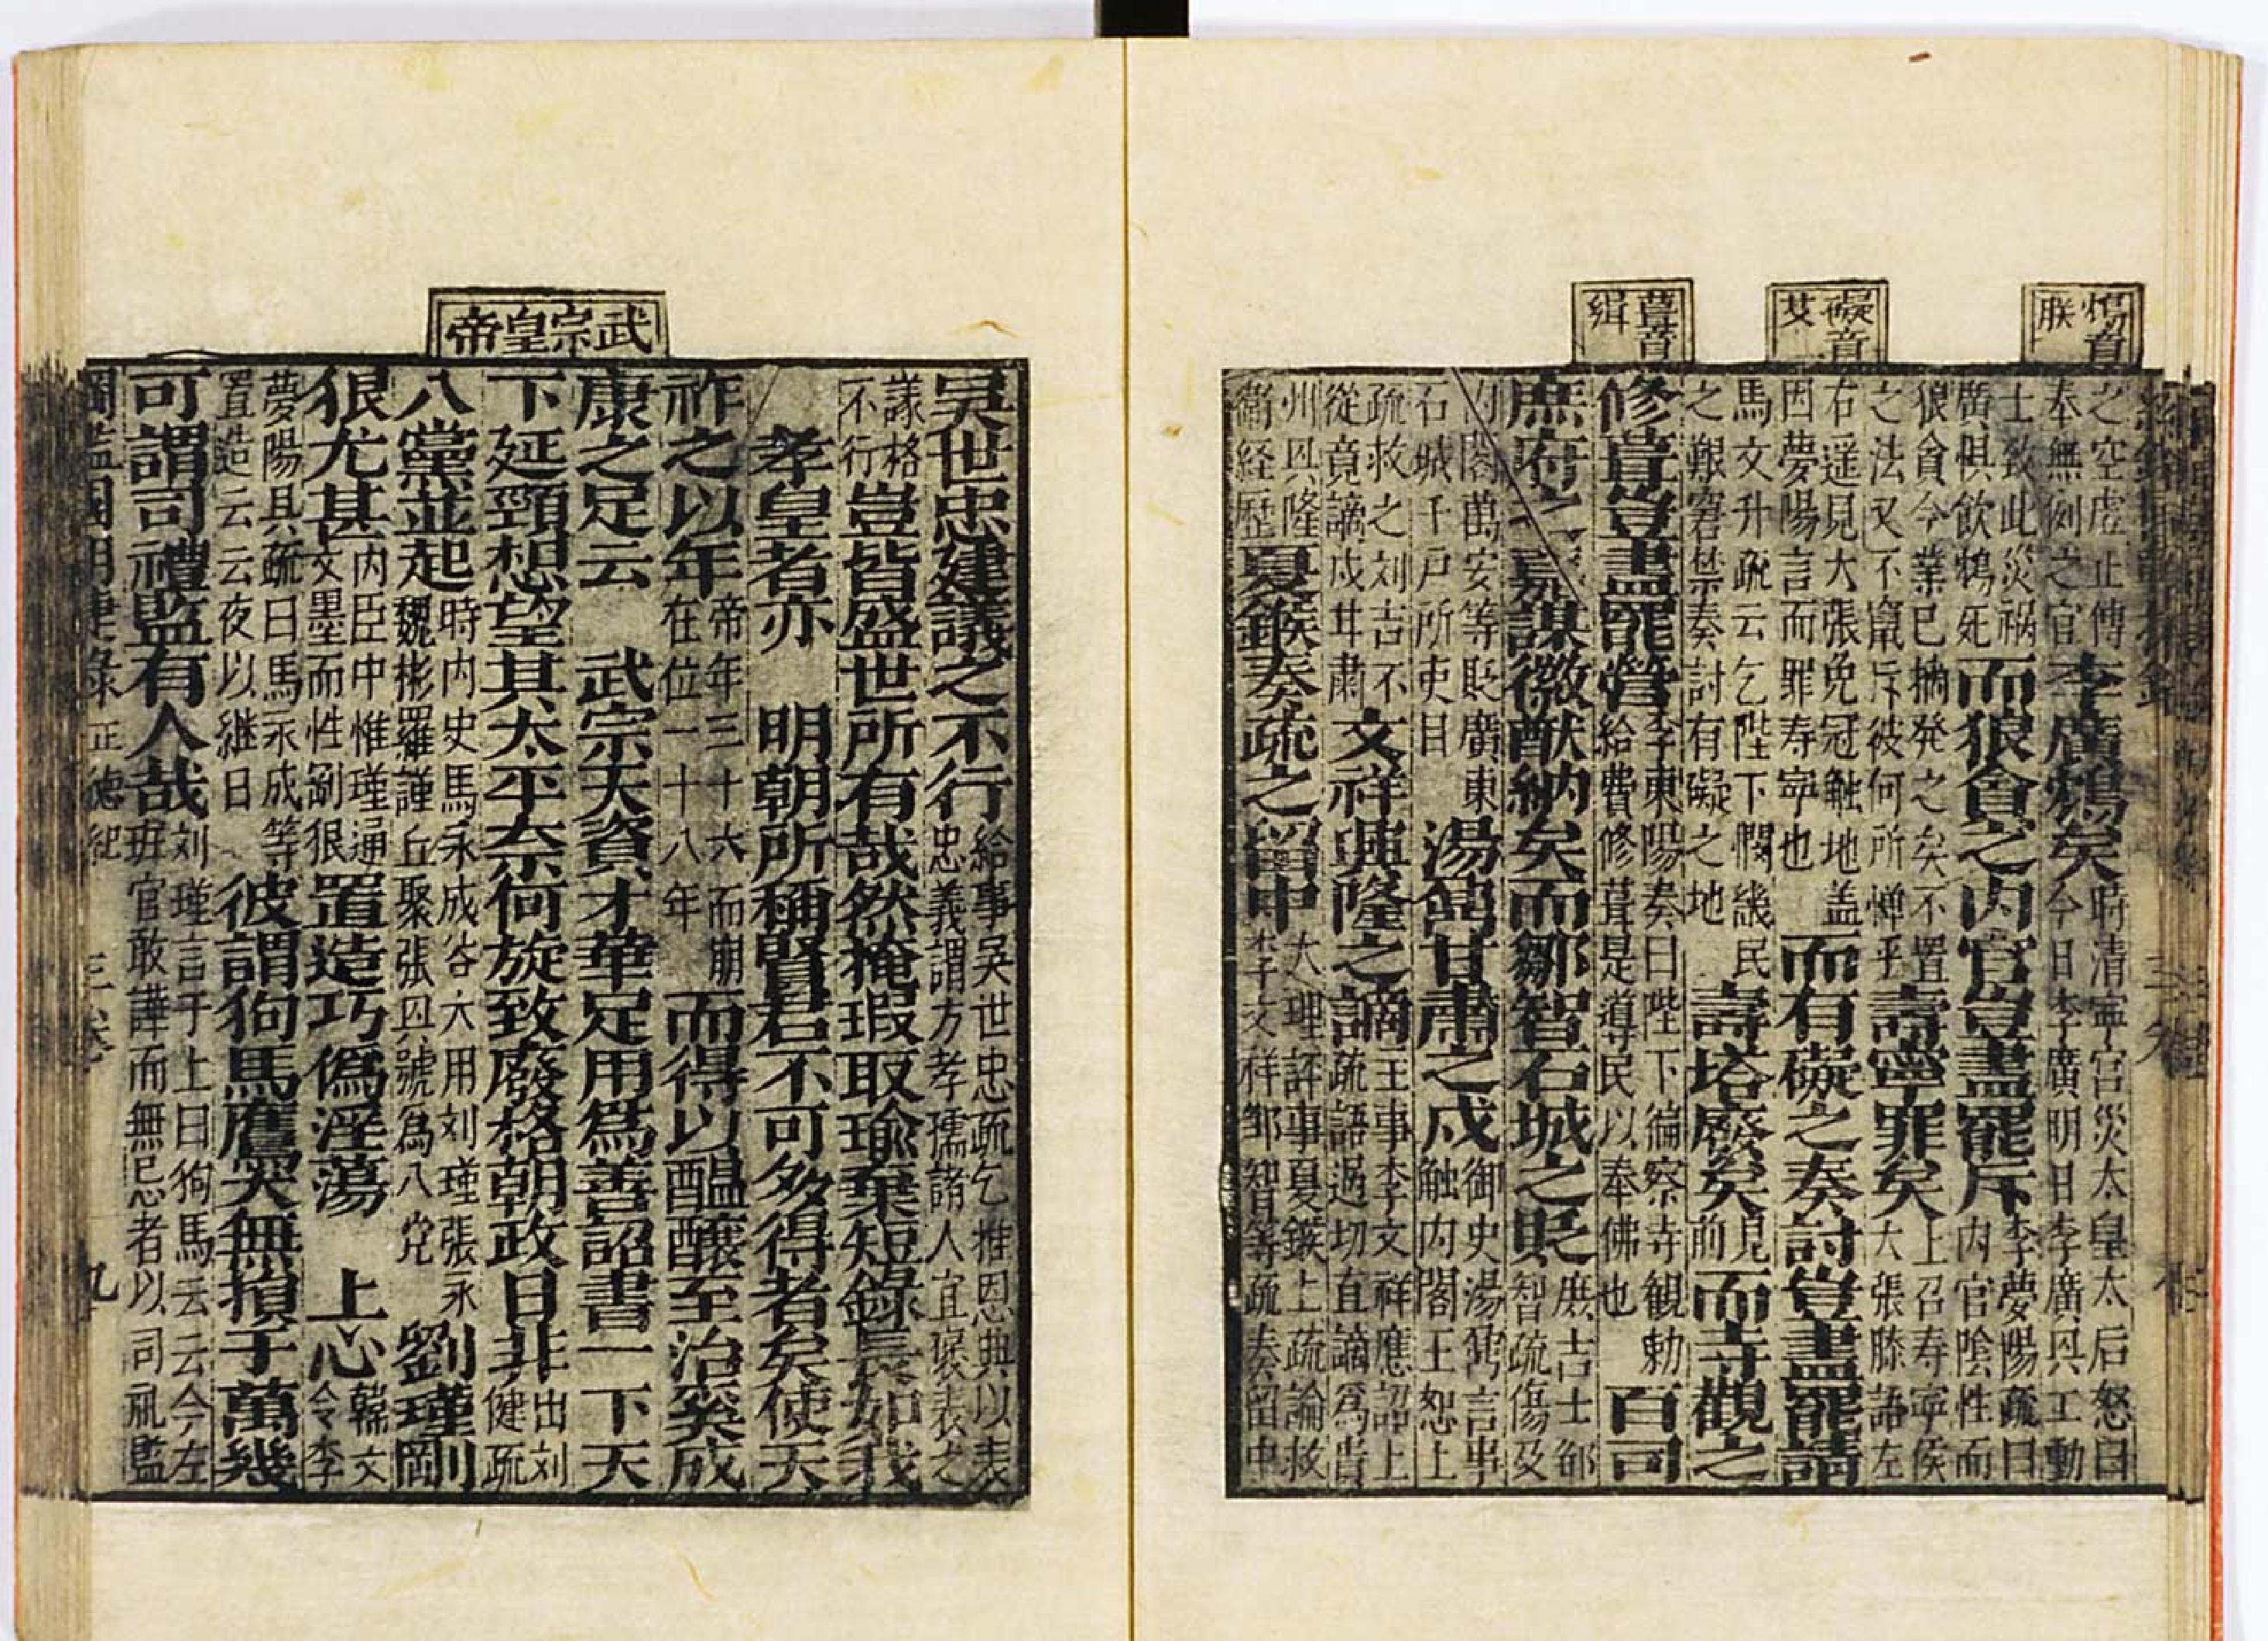 惕音
朕
礙音
艾
葺音
緝
之空虚止傳
奉無例之官
李廣鴆矣
時清寧宮災太皇太后怒曰
今日李廣明日李廣興工動
士致此災祸
廣惧飲鴆死
而狼貪之内官豈盡罷斥
李夢陽疏曰
内官陰性而
狼貪今業已擒発之矣不置
之法又不竄斥彼何所憚乎
壽寧罪矣
上召寿寧侯
大張膝語左
右遥見大張免冠触地盖
因夢陽言而罪寿寧也
而有礙之奏討豈盡罷請
馬文升疏云乞陛下憫畿民
之艱窘禁奏討有礙之地
壽塔廢矣
見
前
而寺觀之
修葺豈盡罷營
李東陽奏曰陛下徧察寺観勅
給費修葺是導民以奉佛也
百司
庶府之嘉謀徽猷納矣而鄒智石城之貶
庶吉士鄒
智疏傷及
内閣萬安等貶廣東
石城千戸所吏目
湯鼐甘肅之戍
御史湯鼐言事
触内閣王恕上
疏救之刘吉不
從竟謫戍甘肅
文祥興隆之謫
主事李文祥應詔上
疏語過切直謫爲貴
州興隆
衛経歴
夏鍭奏疏之留中
大理評事夏鍭上疏論救
李文祥鄒智等疏奏留中
武宗皇帝
吴世忠建議之不行
給事吴世忠疏乞推恩典以表
忠義謂方孝孺諸人宜褒表之
議格
不行
豈皆盛世所有哉然掩瑕取瑜棄短錄長如我
孝皇者亦 明朝所稱賢君不可多得者矣使天
祚之以年
帝年三十六而崩
在位一十八年
而得以醖釀至治奚成
康之足云 武宗天資才華足用爲善詔書一下天
下延頸想望其太平奈何旋致廢格朝政日非
出刘
健疏
八黨並起
時内史馬永成谷大用刘瑾張永
魏彬羅謹丘聚張興號爲八党
劉瑾剛
狠尤甚
内臣中惟瑾通
文墨而性剛狠
置造巧僞淫蕩 上心
韓文
令李
夢陽具疏曰馬永成等
置造云云夜以継日
彼謂狗馬鷹哭無損于萬幾
可謂司禮監有人哉
刘瑾言于上曰狗馬云云今左
班官敢譁而無忌者以司礼監
綱鑑圖明建錄 正徳紀 三卷 九